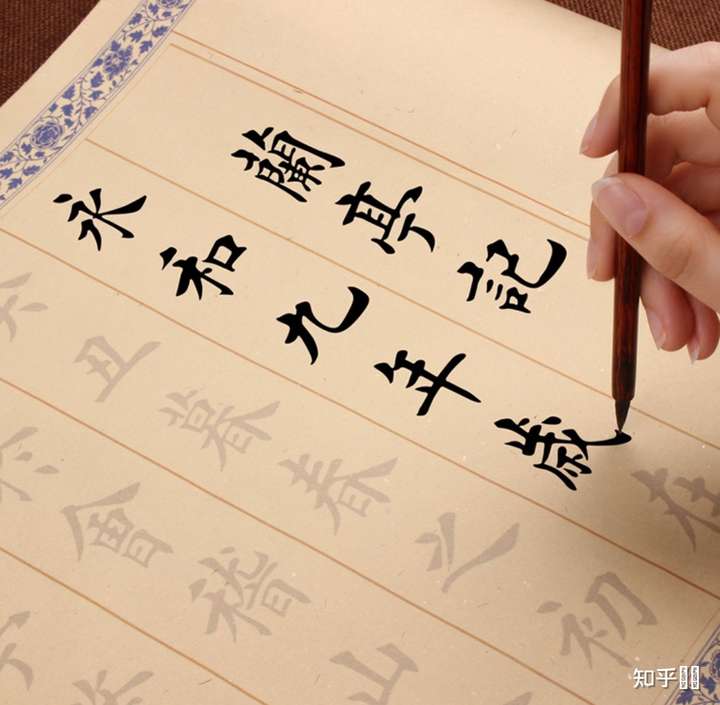 蘭亭記
永和九年歲在
丑暮春之初
會稽山
知乎